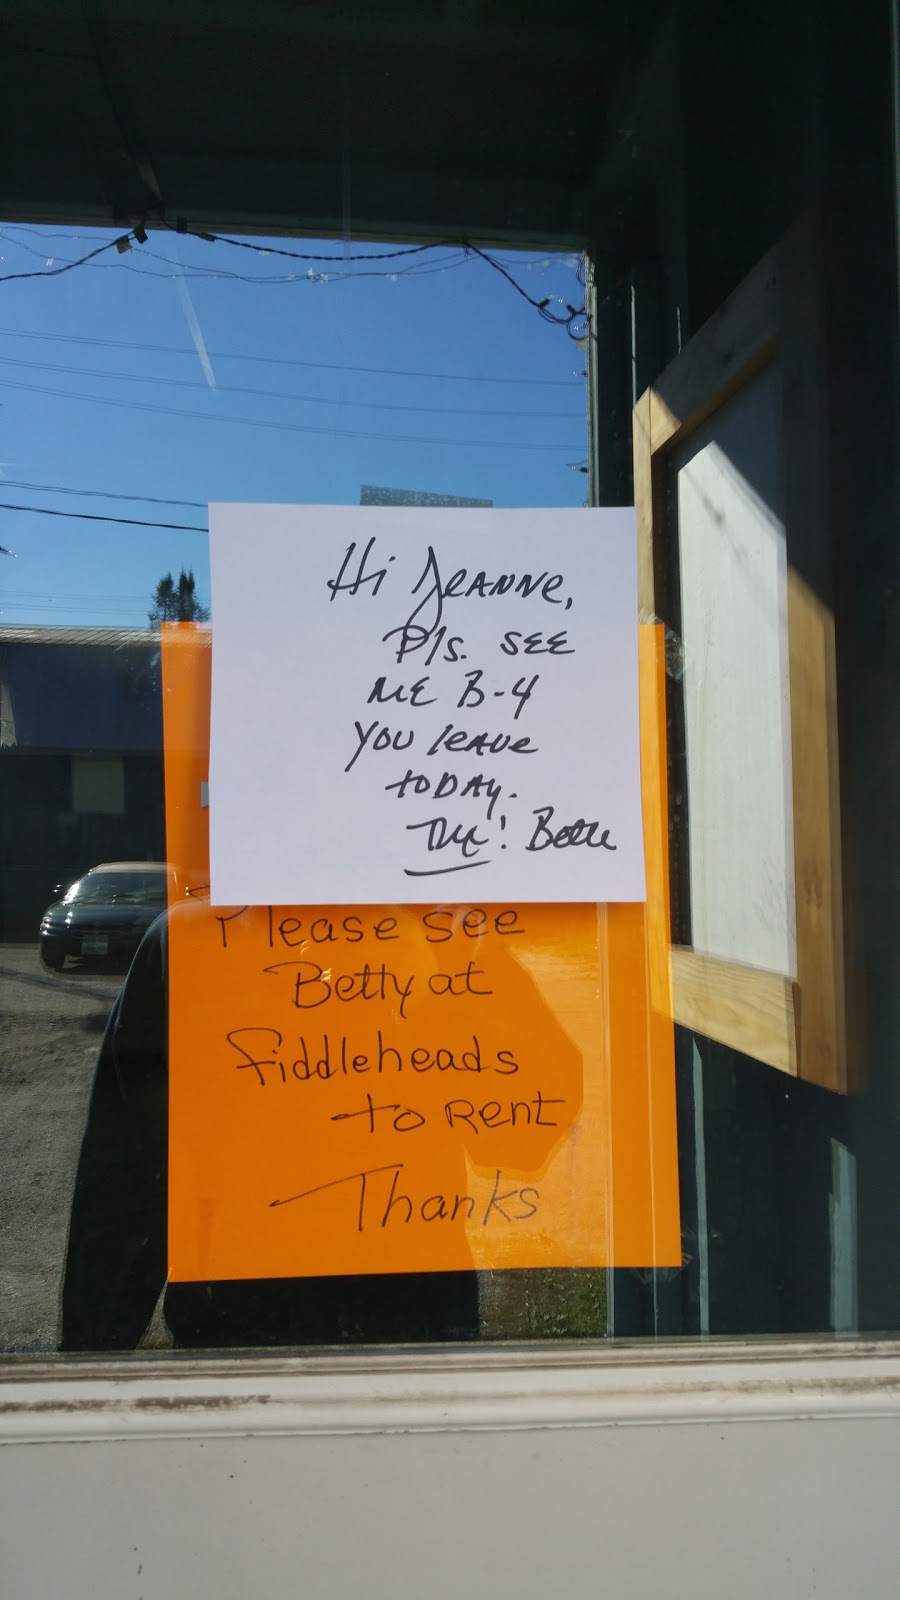 Hi Jeanne,
Pls. see
me B-4
you leave
today.
Please see
Betty at
fiddleheads
to Rent
Thanks